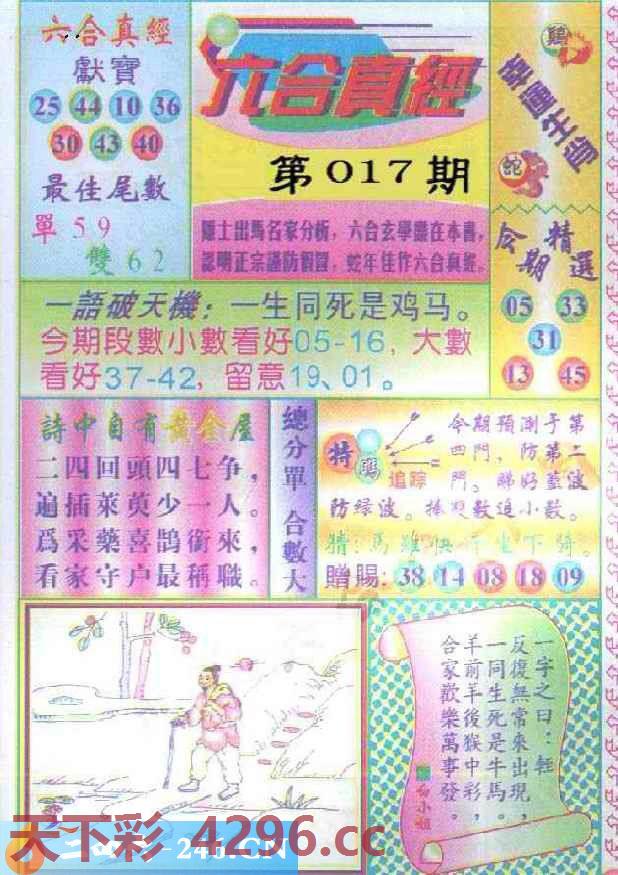 六合真經
獻寶
25 44 10 36
30 43 40
最佳尾數
單 5 9
雙 6 2
六合真經
第017期
隱士出馬名家分析，六合玄學盡在本書，
認明正宗謹防假冒，蛇年佳作六合真經。
鷄
幸運生肖
蛇
今期精選
05 33
31
13 45
一語破天機：一生同死是鸡马。
今期段數小數看好05-16，大數
看好37-42，留意19、01。
詩中自有黃金屋
二四回頭四七争，
遍插萊萸少一人。
爲采藥喜鵲銜來，
看家守户最稱職。
總分單 合數大
特碼
追踪
今期預測于第
四門，防第二
門。睇好藍波
防緑波。
贈賜：38 14 08 18 09
一字之曰：輕
反復無常來出現，
一同生死是牛馬。
羊前羊後猴中彩，
合家歡樂萬事發。
白小姐
天下彩 4296.cc
246.CN